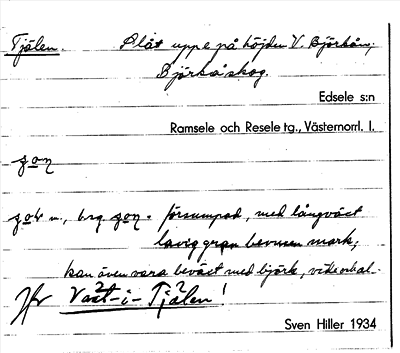 Tjälen. Slåt uppe på höjden V. Björkån;
Björkå skog.
Edsele s:n
Ramsele och Resele tg., Västernorrl. l.
försumpad, med långväxt
lavig gran bevuxen mark;
kan även vara beväxt med björk, vide o.d.
Jfr Vast-i-Tjälen!
Sven Hiller 1934